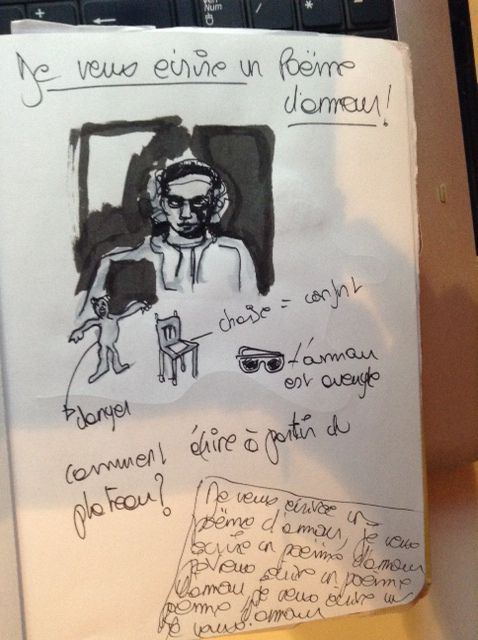 Num
Je veux écrire un Poème
d'amour!
chaise = confort
L'amour
est aveugle
danger
comment écrire à partir du
plateau?
Je veux écrire un
poème d'amour, je veux
écrire un poème d'amour
je veux écrire un poème
d'amour je veux écrire un
poème je veux écrire un
je veux amour